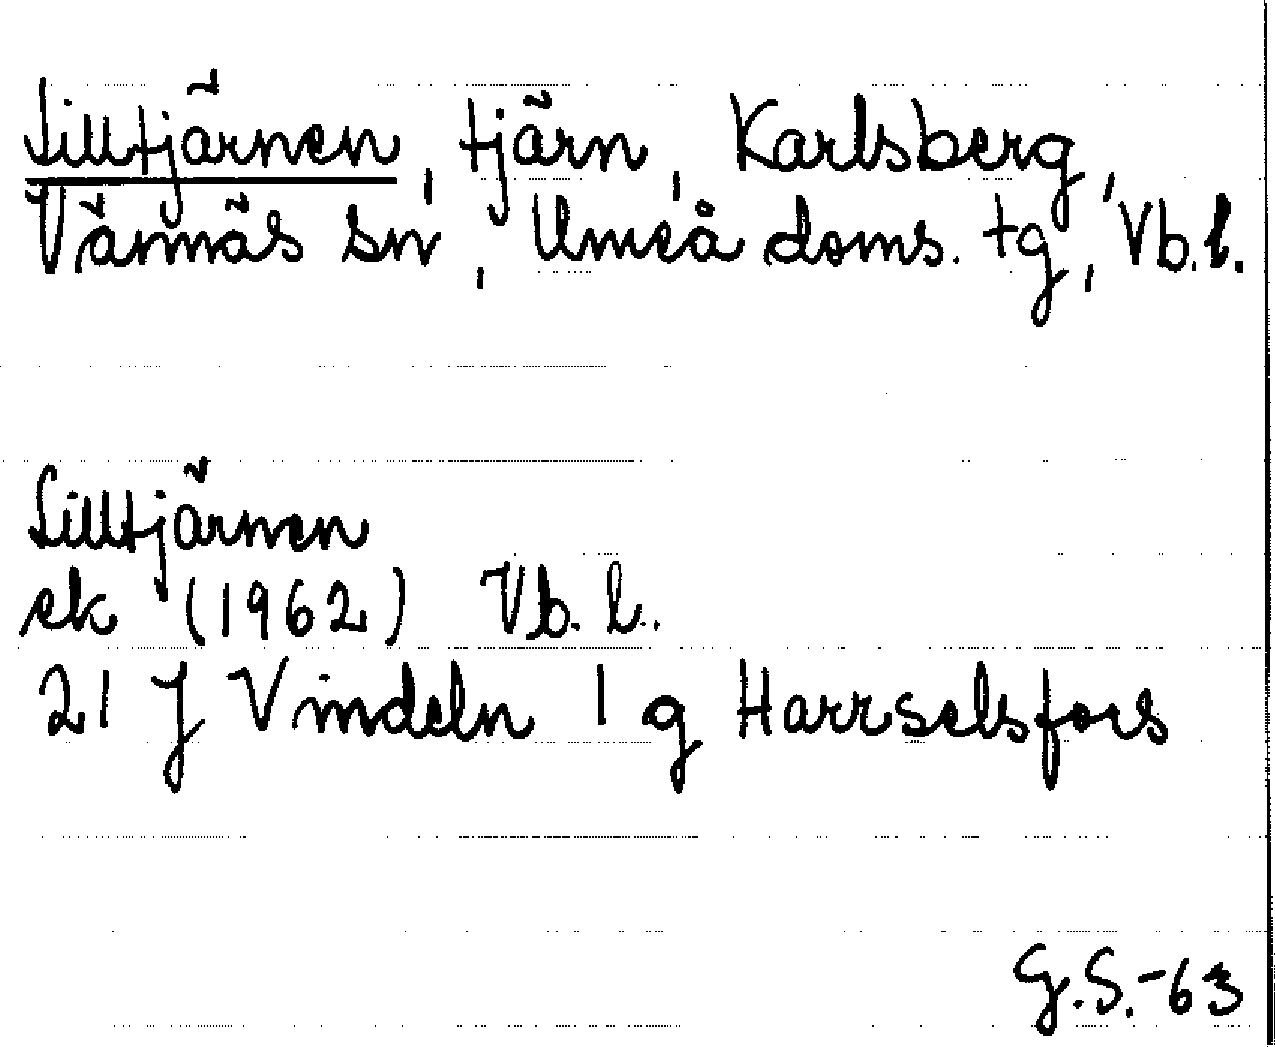 Silltjärnen, tjärn, Karlsberg,
Vännäs sn, Umeå doms. tg, Vb.l.
Silltjärnen
ek (1962) Vb. l.
21 J Vindeln 1 g Harrselsfors
G.S.-63